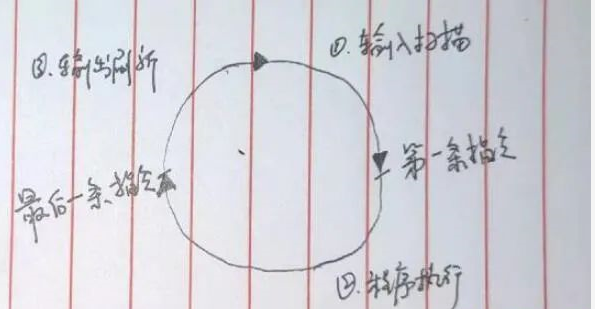 ①.输入扫描
第一条指令
②.程序执行
最后一条指令
③.输出刷新